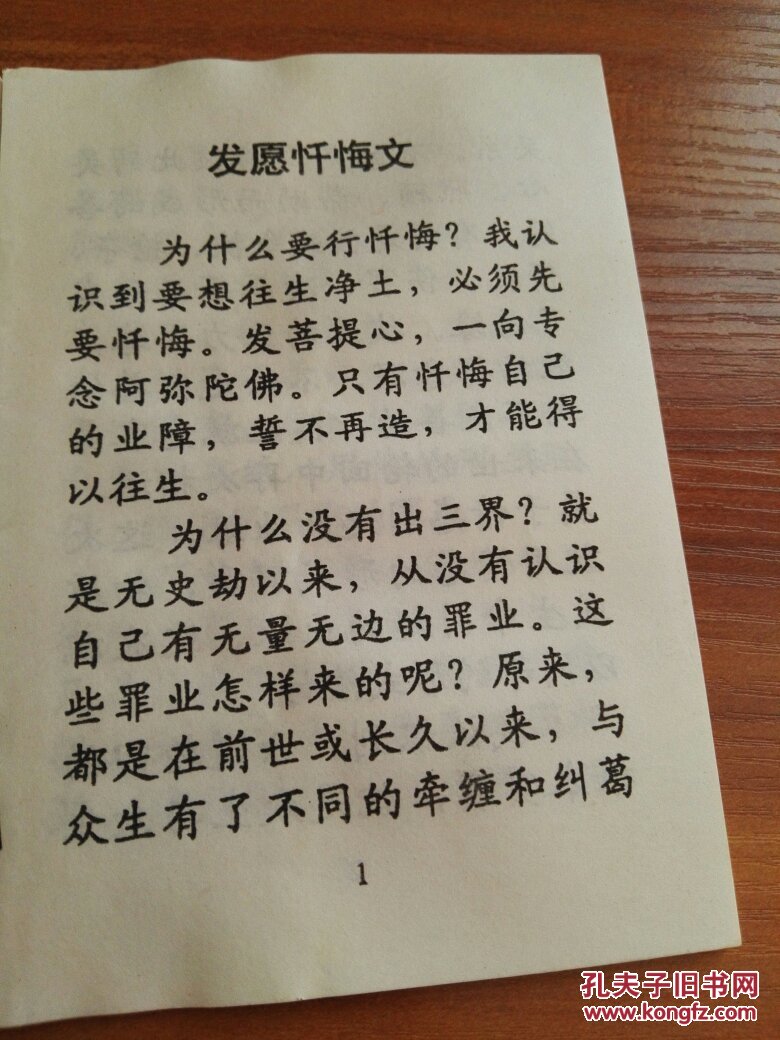 发愿忏悔文
为什么要行忏悔？我认
识到要想往生净土，必须先
要忏悔。发菩提心，一向专
念阿弥陀佛。只有忏悔自己
的业障，誓不再造，才能得
以往生。
为什么没有出三界？就
是无史劫以来，从没有认识
自己有无量无边的罪业。这
些罪业怎样来的呢？原来，
都是在前世或长久以来，与
众生有了不同的牵缠和纠葛
1
孔夫子旧书网
www.kongfz.com